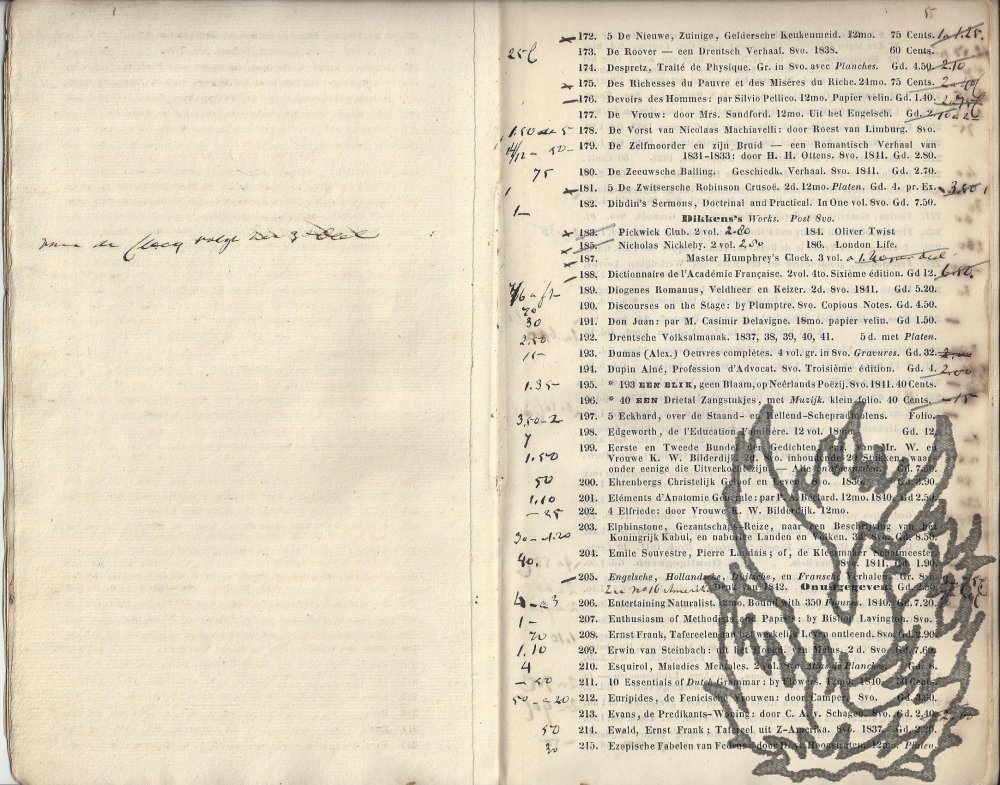 172. 5 De Nieuwe, Zuinige, Geldersche Keukenmeid. 12mo. 75 Cents.
25
173. De Roover — een Drentsch Verhaal. 8vo. 1838. 60 Cents.
174. Despretz, Traité de Physique. Gr. in 8vo. avec Planches. Gd. 4.50. 2.10
175. Des Richesses du Pauvre et des Misères du Riche. 24mo. 75 Cents.
176. Devoirs des Hommes: par Silvio Pellico. 12mo. Papier velin. Gd. 1.40.
177. De Vrouw: door Mrs. Sandford. 12mo. Uit het Engelsch. Gd. 2.
178. De Vorst van Nicolaas Machiavelli: door Roest van Limburg. 8vo.
179. De Zelfmoorder en zijn Bruid — een Romantisch Verhaal van
1831-1833: door H. H. Ottens. 8vo. 1841. Gd. 2.80.
75 180. De Zeeuwsche Balling. Geschiedk. Verhaal. 8vo. 1841. Gd. 2.70.
181. 5 De Zwitsersche Robinson Crusoë. 2d. 12mo. Platen. Gd. 4. pr. Ex. 3.50
182. Dibdin's Sermons, Doctrinal and Practical. In One vol. 8vo. Gd. 7.50.
1-
Dikkens's Works. Post 8vo.
183. Pickwick Club. 2 vol. 2.80 184. Oliver Twist
185. Nicholas Nickleby. 2 vol. 2.80 186. London Life.
187. Master Humphrey's Clock. 3 vol.
188. Dictionnaire de l'Académie Française. 2vol. 4to. Sixième édition. Gd 12.
189. Diogenes Romanus, Veldheer en Keizer. 2d. 8vo. 1841. Gd. 5.20.
70 190. Discourses on the Stage: by Plumptre. 8vo. Copious Notes. Gd. 4.50.
30 191. Don Juan: par M. Casimir Delavigne. 18mo. papier velin. Gd 1.50.
2.50 192. Drentsche Volksalmanak. 1837, 38, 39, 40, 41. 5d. met Platen.
15- 193. Dumas (Alex.) Oeuvres complètes. 4 vol. gr. in 8vo. Gravures. Gd. 32.
194. Dupin Ainé, Profession d'Advocat. 8vo. Troisiéme édition. Gd. 4. 2.00
1.35 195. * 193 EEN BLIK, geen Blaam, op Neêrlands Poëzij. 8vo. 1841. 40 Cents.
196. * 40 EEN Drietal Zangstukjes, met Muzijk. klein folio. 40 Cents. 15
3.50-2 197. 5 Eckhard, over de Staand- en Hellend-Schepradmolens. Folio.
7 198. Edgeworth, de l'Education Familière. 12 vol. 18mo. Gd. 12.
199. Eerste en Tweede Bundel der Gedichten, enz. van Mr. W. en
1.50 Vrouwe K. W. Bilderdijk. 2d. 8vo. inhoudende 20 Stukken, waar-
onder eenige die Uitverkocht zijn. — Alle Gd. 7.50.
50 200. Ehrenbergs Christelijk Geloof en Leven. 8vo. 1836. Gd. 3.90.
1.10 201. Eléments d'Anatomie Générale: par P. A. Béclard. 12mo. 1840. Gd 2.50.
-25 202. 4 Elfriede: door Vrouwe K. W. Bilderdijk. 12mo.
203. Elphinstone, Gezantschaps-Reize, naar een Beschrijving van het
Koningrijk Kabul, en naburige Landen en Volken. 3d. 8vo. Gd. 8.50.
40. 204. Emile Souvestre, Pierre Landais; of, de Kleermaker Schatmeester.
8vo. 1841. Gd. 1.90.
205. Engelsche, Hollandsche, Duitsche, en Fransche Verhalen. Gr. 8vo.
van 1842. Onuitgegeven.
206. Entertaining Naturalist. 12mo. Bound with 350 Figures. 1840. Gd. 7.20.
1- 207. Enthusiasm of Methodists and Papists: by Bishop Lavington. 8vo.
70 208. Ernst Frank, Tafereelen aan het werkelijk Leven ontleend. 8vo. Gd. 2.90.
1.10 209. Erwin van Steinbach: uit het Hoogd. van Melas. 2 d. 8vo. Gd. 7.60.
4 210. Esquirol, Maladies Mentales. 2 vol. 8vo. atlas de Planches. Gd. 8.
-50 211. 10 Essentials of Dutch Grammar: by Flowers. 12mo. 1840. 50 Cents.
50-a20 212. Euripides, de Fenicische Vrouwen: door Camper. 8vo. Gd. 3.60.
213. Evans, de Predikants-Woning: door C. A. v. Schagen. 8vo. Gd. 2.40.
50 214. Ewald, Ernst Frank; Tafereel uit Z-Amerika. 8vo. 1837. Gd. 2.20.
20 215. Ezopische Fabelen van Fedrus: door D. v. Hoogstraten. 12mo. Platen.